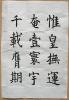 惟皇撫運
奄壹寰宇
千載膺期